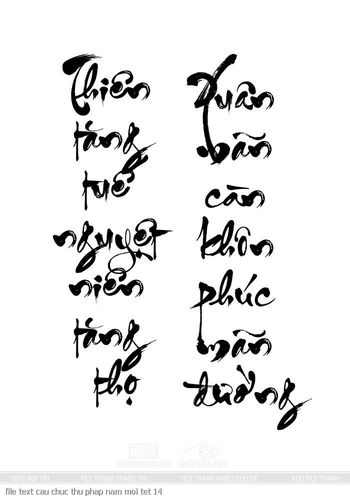 Thiên
tăng
tuế
nguyệt
niên
tăng
thọ
Xuân
mãn
càn
khôn
phúc
mãn
đường
0918 988 781
FILE TRANH TRANG TRÍ
FILE TRANH NHIỀU CHỦ ĐỀ
KHO FILE TRANH
file text cau chuc thu phap nam moi tet 14